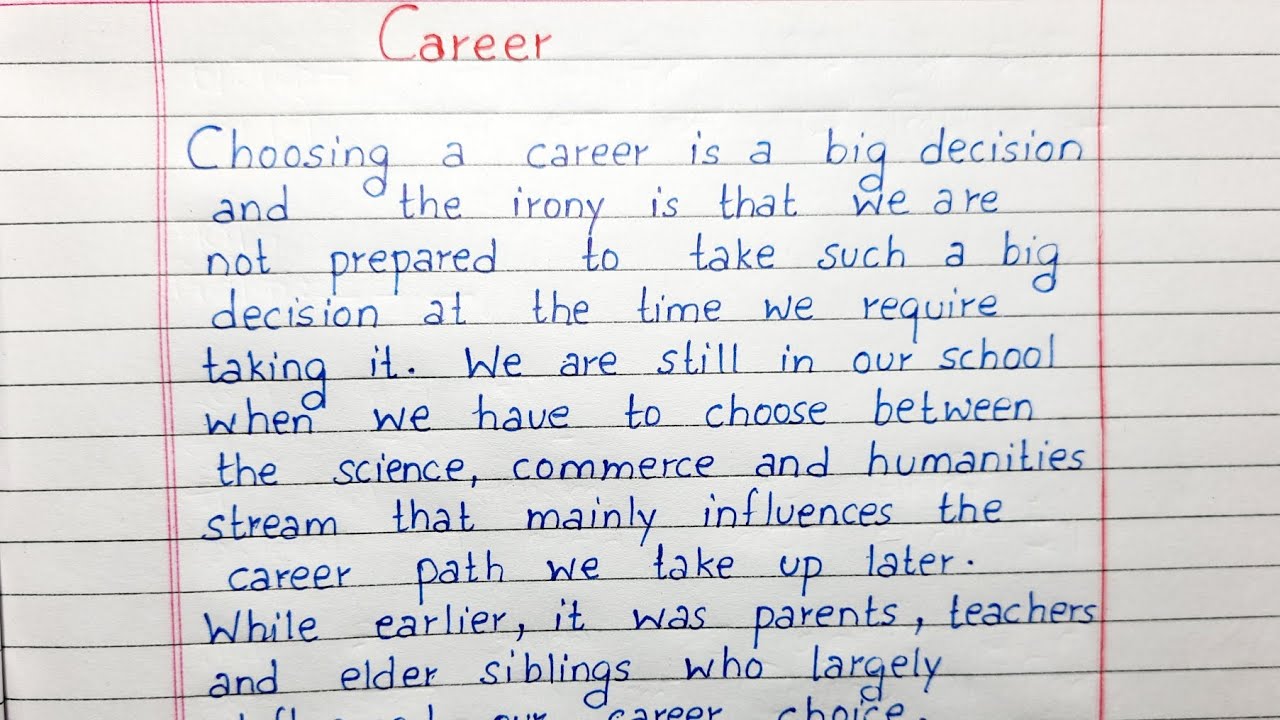 Career
Choosing a career is a big decision
and the irony is that we are
not prepared to take such a big
decision at the time we require
taking it. We are still in our school
when we have to choose between
the science, commerce and humanities
stream that mainly influences the
career path we take up later.
While earlier, it was parents, teachers
and elder siblings who largely
our career choice.